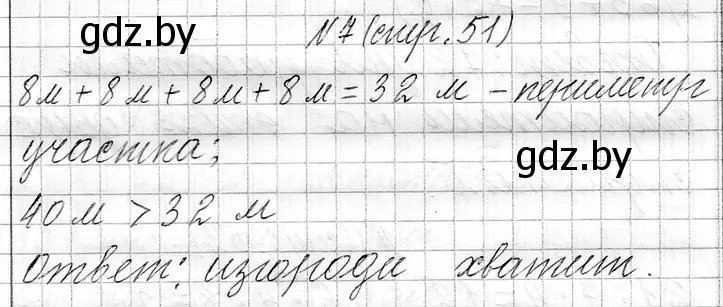 gdz.by
N7 (стр. 51)
8м + 8м + 8м + 8м = 32 м - периметр
участка;
gdz.by
40м > 32 м
Ответ: изгороди хватит.